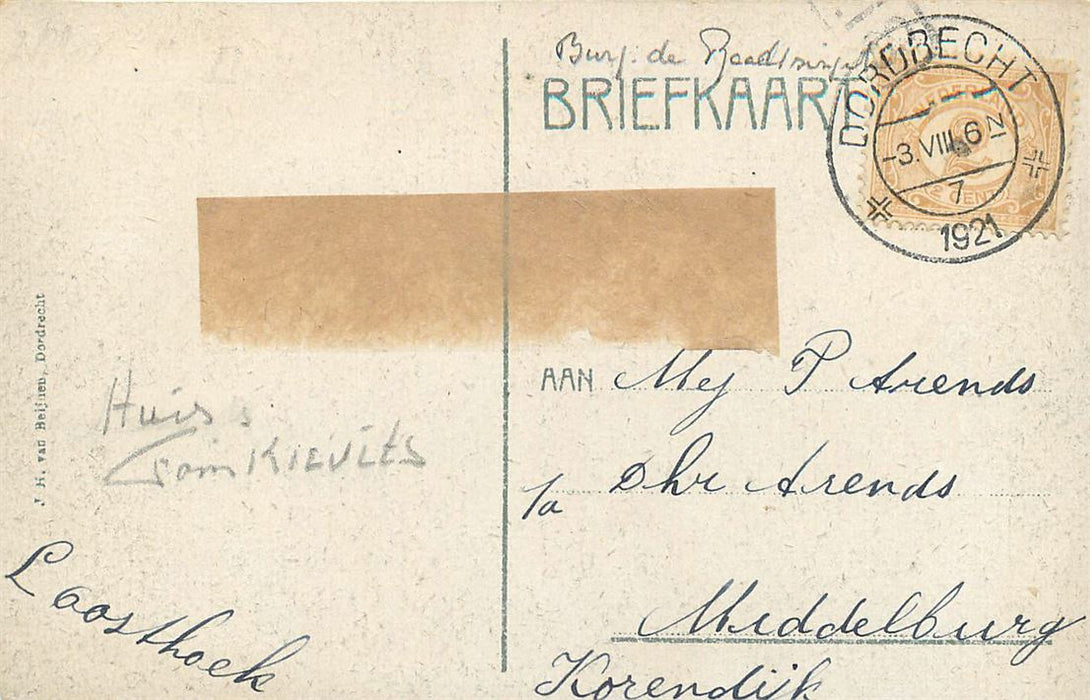 Burg. de Raadtsingel
BRIEFKAART
DORDRECHT
-3.VIII.6N
7
1921
CENT
J. H. van Beijnen, Dordrecht
AAN Mej P Arends
Huis
KIEVITS
1/a Dhr Arends
L Oosthoek
Middelburg
Korendijk